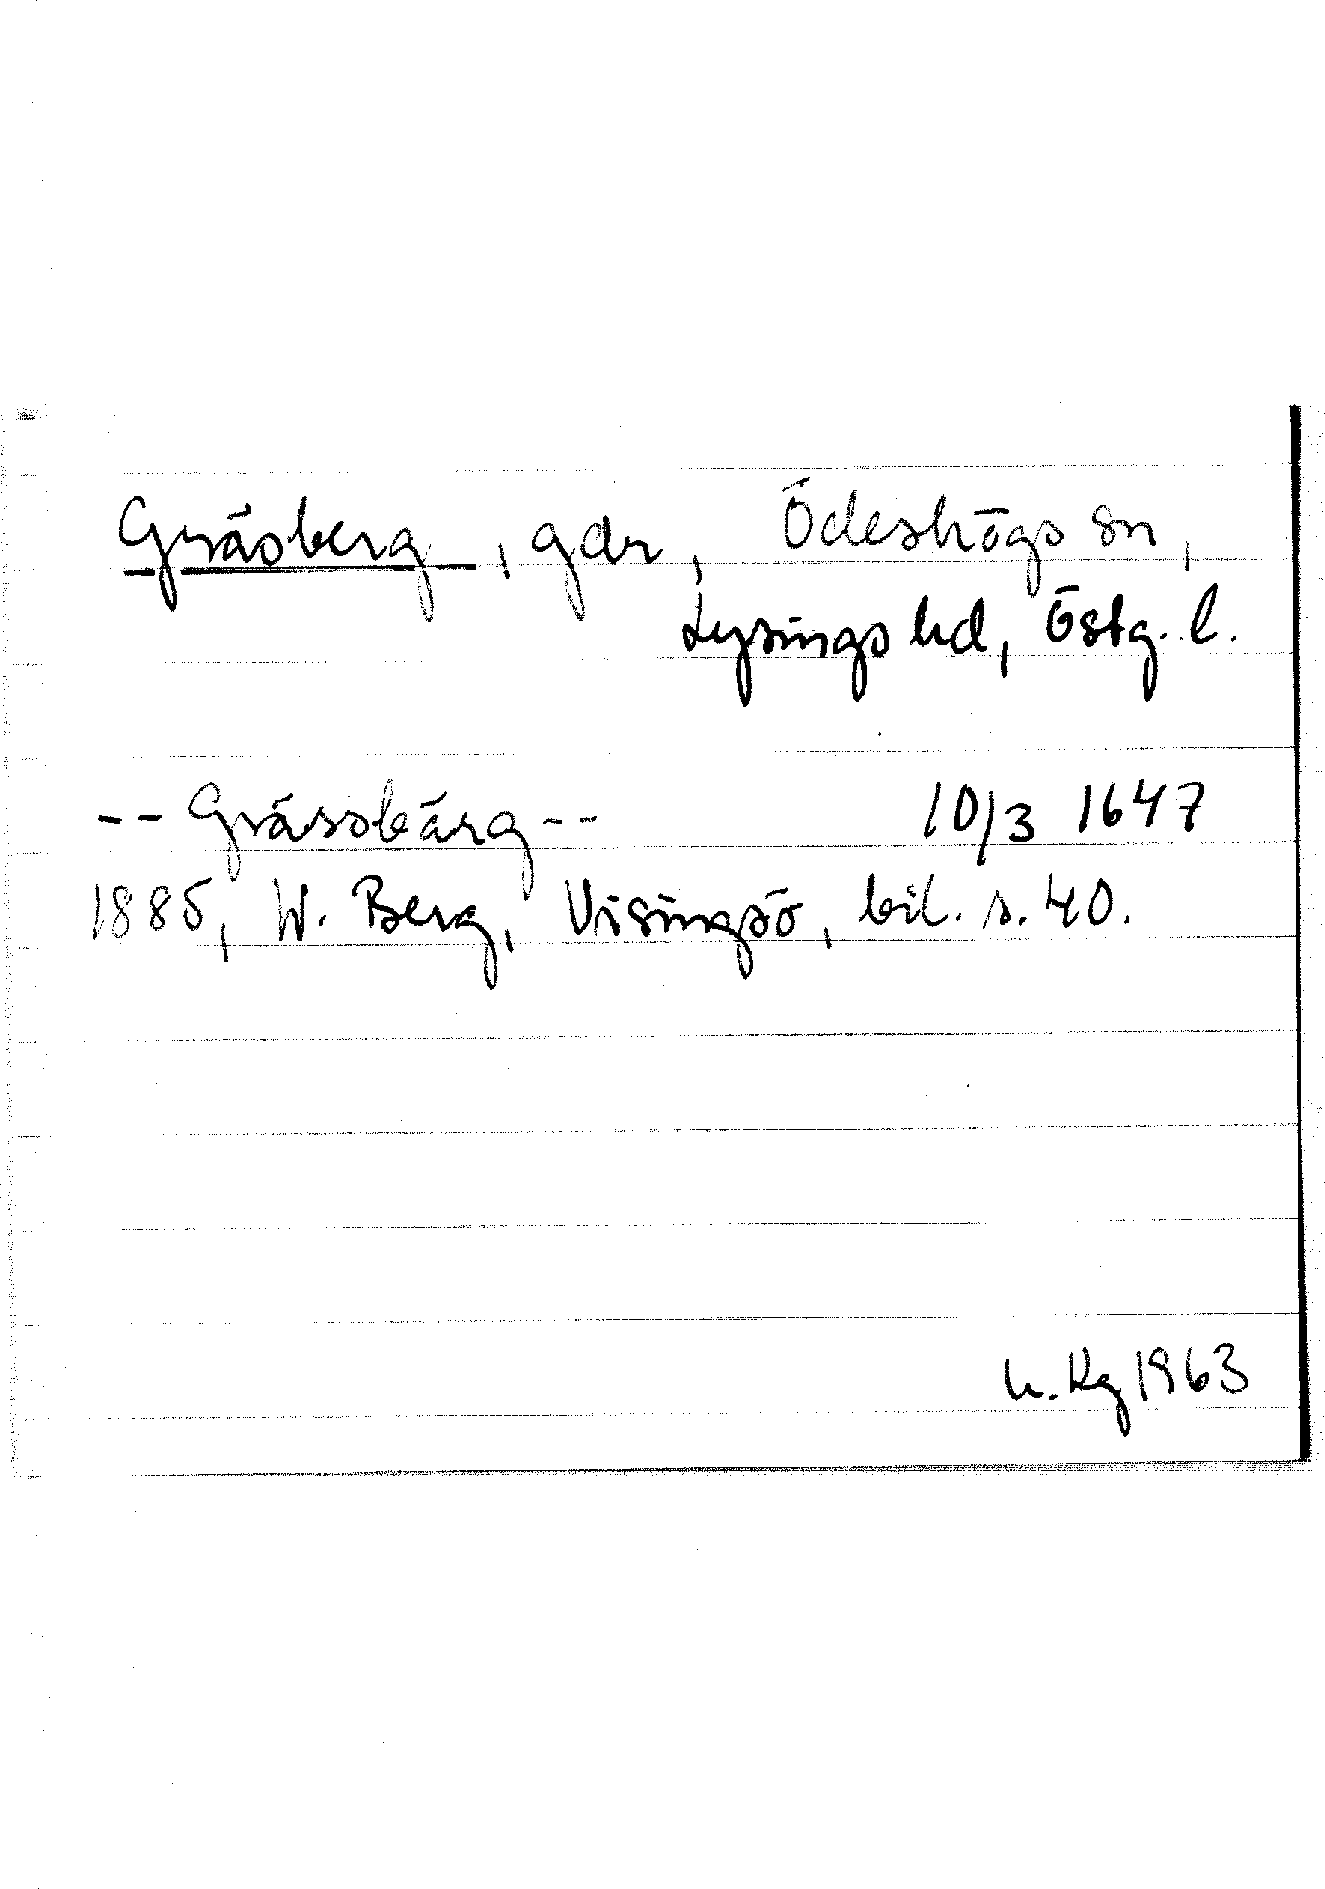 Gräsberg, gdr, Ödeshögs sn,
Lysings hd, Östg. l.
-- Grässbärg -- 10/3 1647
1885, W. Berg, Visingsö, bil. s. 40.
Kg 1963